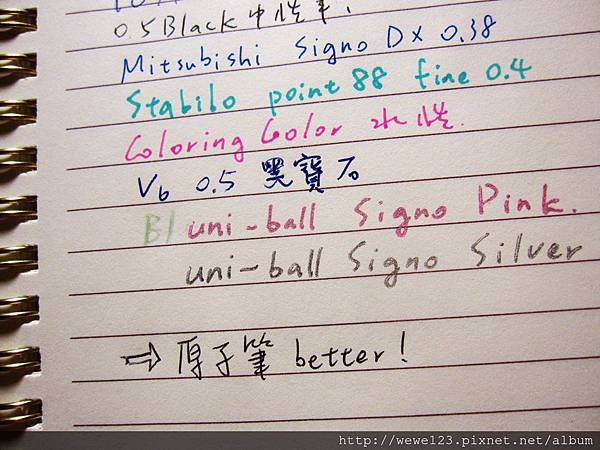 0.5 Black 中性筆!
Mitsubishi Signo DX 0.38
Stabilo point 88 fine 0.4
Coloring Color 水性.
V6 0.5 黑寶石
Bl uni-ball Signo Pink.
uni-ball Signo Silver
⇒ 原子筆 better!
http://wewe123.pixnet.net/album